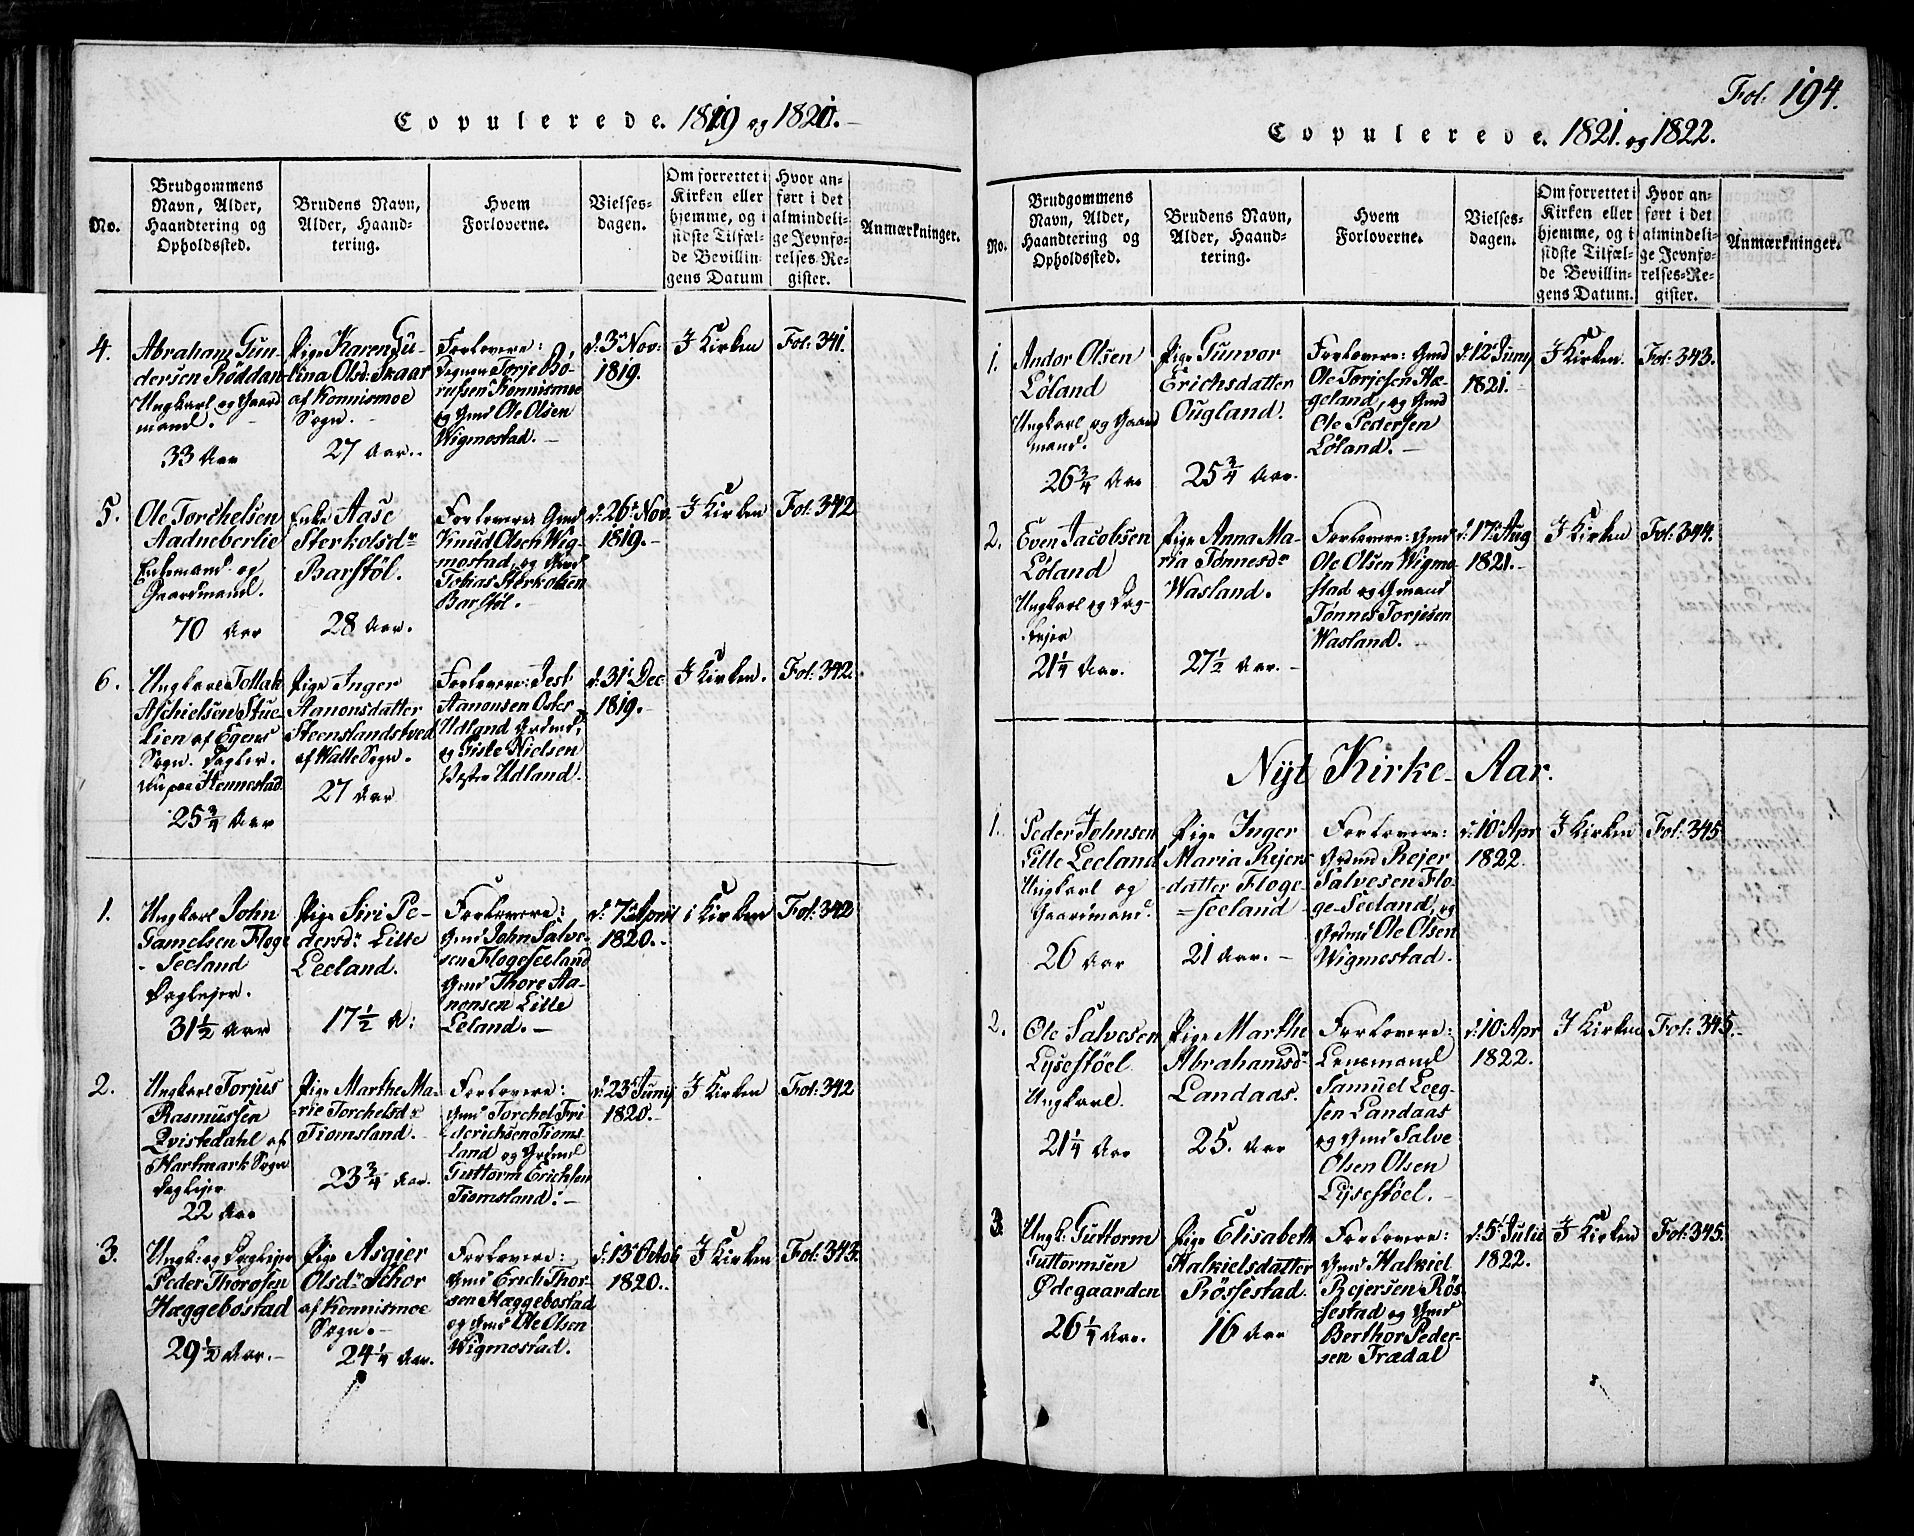 Copulerede. 1819 og 1820.
No.
Brudgommens
Navn, Alder,
Haandtering og
Opholdssted.
Brudens Navn,
Alder, Haand-
tering.
Hvem
Forloverne.
Vielses-
dagen.
Om forrettet i
Kirken eller
hjemme, og i
sidste Tilfæl-
de Bevillin-
gens Datum
Hvor an-
ført i det
almindeli-
ge Jevnfø-
relses-Re-
gister.
Anmærkninger.
4.
Abraham Gun-
dersen Røddan
Ungkarl og Gaard
mand.
33 Aar
Pige Karen Gu-
lina Olsd: Skaar
af Konnismoe
Sogn.
27 Aar.
Forlovere:
Degnen Torje Bø-
rufsen Konnismoe
og Gmd Ole Olsen
Wigmostad.
d: 3 Nov:
1819.
I Kirken
Fol: 341.
5.
Ole Torchelsen
Nadneberlie
Enkemand og
Gaardmand.
70 Aar
Enke Aase
Sterkolsdr
Barstøl.
28 Aar.
Forlovere Gmd
Knud Olsen Wig-
mostad, og Gmd
Tobias Sterkolsen
Barstøl.
d: 26 Nov.
1819.
I Kirken
Fol: 342
6.
Ungkarl Tollak
Aschielsen Stue
Lien af Egens
Sogn. Daglejer.
nu paa Hennestad
25 3/4 Aar
Pige Inger
Aanonsdatter
Steenslandstved
af Walle Sogn.
27 Aar
Forlovere: Jest
Aanonsen Oster
Udland Grdmd,
og Giske Nielsen
Vester Udland.
d: 31 Dec
1819.
I Kirken.
Fol: 342.
1.
Ungkarl John
Gamelsen Floge
-Seeland
Daglejer.
31 1/2 Aar
Pige Siri Pe-
dersdr Lille
Leeland.
17 1/2 A:
Forlovere:
Gmd John Salve-
sen Flogeseeland
Gmd Thore Aa-
nonsen Lille
Leland.
d: 7 April
1820.
i Kirken
Fol: 342
2.
Ungkarl Torjus
Rasmussen
Qvistedahl af
Hartmark Sogn
Daglejer
22 Aar
Pige Marthe Ma-
rie Torchelsdr
Tiomsland.
23 3/4 Aar.
Forlovere:
Gmd Torchel Fri-
derichsen Tioms-
land og Grdmd
Guttorm Erichsen
Tiomsland.
d: 23 Junij
1820.
I Kirken
Fol: 342
3.
Ungk: og Daglejer
Peder Thorgsen
Hæggebostad
29 1/2 Aar.
Pige Asgier
Olsdr Schor
af Konnismoe
Sogn.
24 1/4 Aar.
Forlovere:
Gmd Erich Thor-
sen Hæggebostad
og Gmd Ole Olsen
Wigmostad.
d: 13 Octob
1820.
I Kirken
Fol: 343.
Fol: 194.
Copulerede. 1821. og 1822.
No.
Brudgommens
Navn, Alder,
Haandtering og
Opholdssted.
Brudens Navn,
Alder, Haand-
tering.
Hvem
Forloverne.
Vielses-
dagen.
Om forrettet i
Kirken eller
hjemme, og i
sidste Tilfæl-
de Bevillin-
gens Datum.
Hvor an-
ført i det
almindeli-
ge Jevnfø-
relses-Re-
gister.
Anmærkninger.
1.
Andor Olsen
Løland
Ungkarl og Gaard
mand.
26 3/4 Aar
Pige Gunvor
Erichsdatter
Ougland.
25 3/4 Aar.
Forlovere: Gmd
Ole Torjesen Hæ-
geland, og Gmd
Ole Pedersen
Løland.
d: 12 Junij
1821.
I Kirken.
Fol: 343.
2.
Even Jacobsen
Løland
Ungkarl og Dag-
lejer
21 1/4 Aar.
Pige Anna Ma-
ria Tønnesdr
Wasland.
27 1/2 Aar.
Forlovere: Gmd
Ole Olsen Wigmo-
stad og Gmand
Tønnes Torjesen
Wasland.
d: 17 Aug
1821.
I Kirken
Fol: 344.
Nyt Kirke-Aar.
1.
Peder Johnsen
Lille Leeland
Ungkarl og
Gaardmand.
26 Aar
Pige Inger
Maria Rejers-
datter Floge-
=seeland
21 Aar.
Forlovere:
Grdmd Rejer
Salvesen Flo-
ge-Seeland, og
Grdmd Ole Olsen
Wigmestad.
d: 10 Apr
1822.
I Kirken
Fol: 345
2.
Ole Salvesen
Lysestøel
Ungkarl.
21 1/4 Aar
Pige Marthe
Abrahamsdr
Landaas.
25. Aar
Forlovere:
Lensmand
Samuel Leeg-
sen Landaas
og Gmd Salve
Olsen Olsen
Lysestøel.
d: 10 Apr
1822.
I Kirken
Fol: 345.
3.
Ungk: Guttorm
Guttormsen
Ødegaarden
26 1/4 Aar.
Pige Elisabeth
Halkielsdatter
Røssestad.
16 Aar
Forlovere:
Gmd Halkiel
Rejersen Røs-
sestad og Gmd
Berthor Peder-
sen Trædal
d: 5 Julii
1822.
I Kirken
Fol: 345.